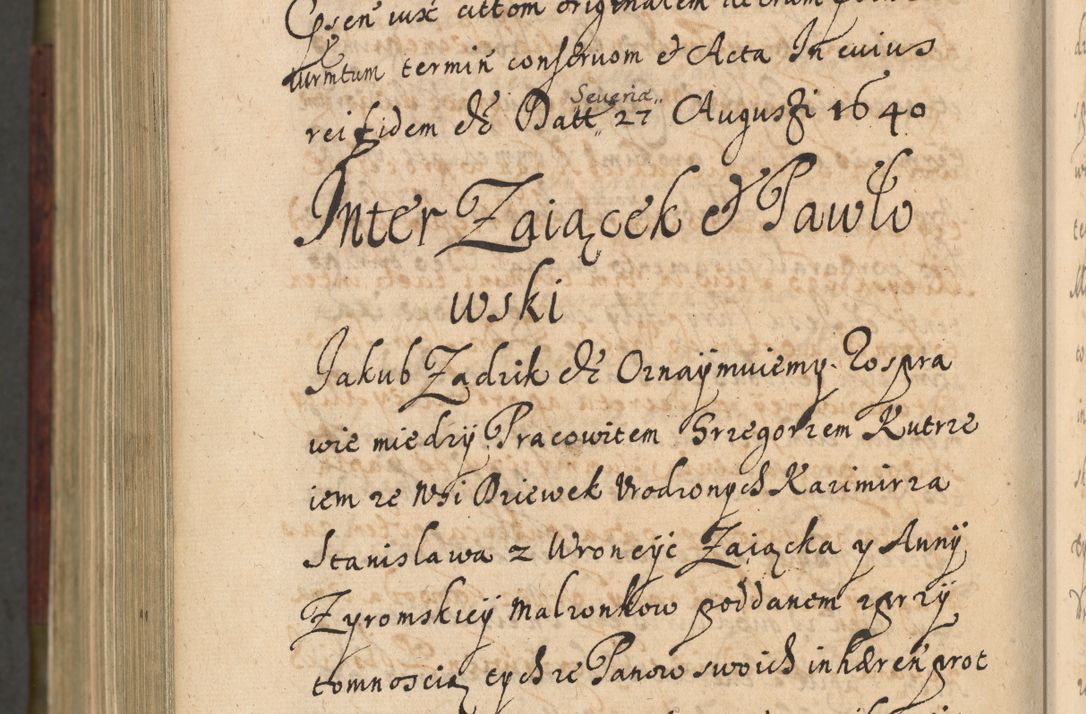 Cpsen iuxc attom originalem
iurmtum termin conservom et Acta In cuius
Severiæ
rei fidem etc Datt 27 Augusti 1640
Inter Zaiącek et Pawło
wski
Jakub Zadzik etc Oznaÿmuiemy. Rospra
wie międzÿ Pracowitem Grzegorzem Kutrze
iem ze Wsi Dziewek Urodzonych Kazimirza
Stanisława z Wroncÿc Zaiącka y Annÿ
Zyromskieÿ Malzonkow poddanem zprzÿ
tomnoscią tychze Panow swoich inhæren prot